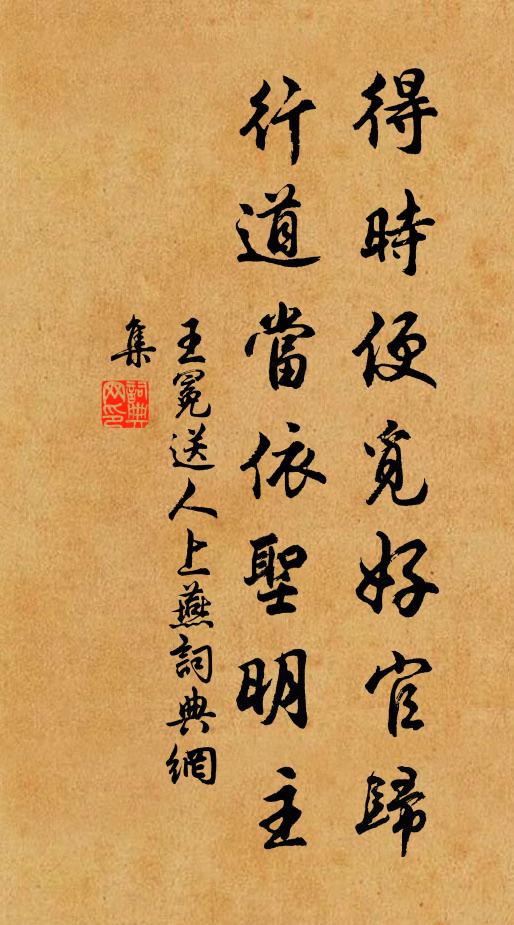 得時便覓好官歸
行道當依聖明主
王冕送人上燕詞典網
集
詞典
网印